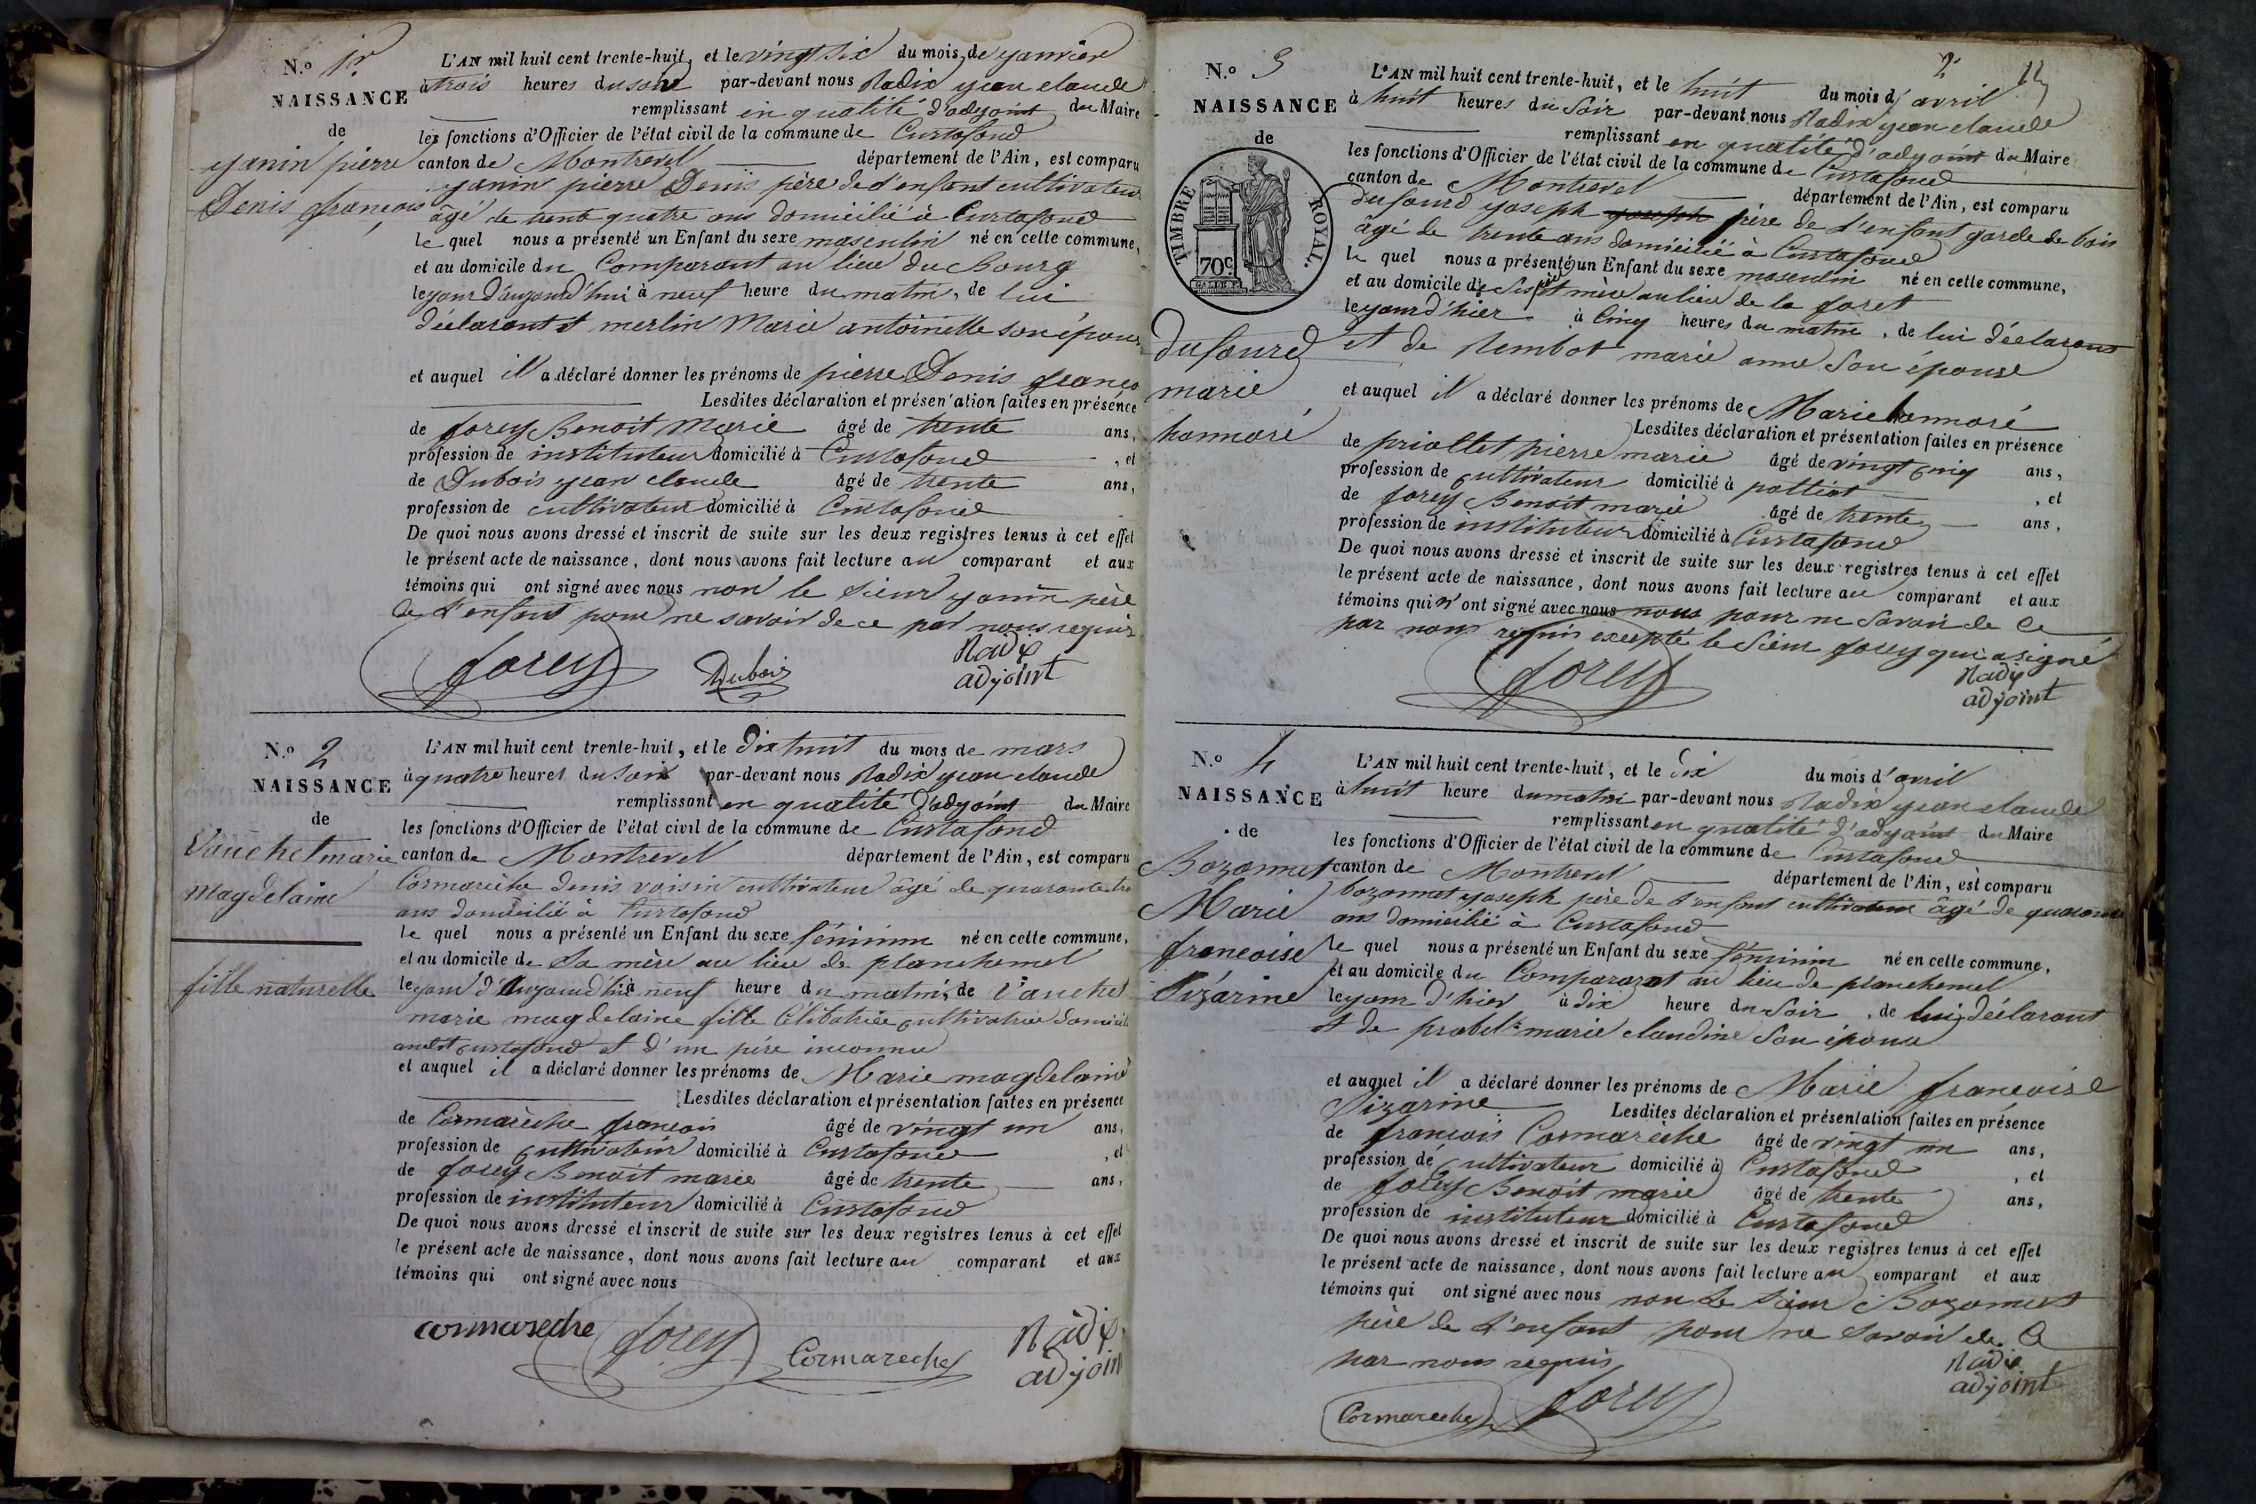 N.o 1r
NAISSANCE
de
yanin pierre
Denis françois
L'AN mil huit cent trente-huit, et le vingt six du mois de yanvier
à trois heures du soir par-devant nous Radix yean claude
remplissant en qualité d'adyoint du Maire
les fonctions d'Officier de l'état civil de la commune de Curtafond
canton de Montrevel département de l'Ain, est comparu
yanin pierre Denis père de l'enfant cultivateur
âgé de trente quatre ans domicilié à Curtafond
le quel nous a présenté un Enfant du sexe masculin né en cette commune,
et au domicile du Comparant au lieu du Bourg
le your d'auyourd'hui à neuf heure du matin, de lui
déclarant et merlin Marie antoinette son épouse
et auquel il a déclaré donner les prénoms de pierre Denis françois
Lesdites déclaration et présentation faites en présence
de forey Benoit Marie âgé de trente ans,
profession de instituteur domicilié à Curtafond , et
de Dubois yean claude âgé de trente ans,
profession de cultivateur domicilié à Curtafond
De quoi nous avons dressé et inscrit de suite sur les deux registres tenus à cet effet
le présent acte de naissance, dont nous avons fait lecture au comparant et aux
témoins qui ont signé avec nous non le sieur yanin père
de l'enfant pour ne savoir de ce par nous requis
forey Dubois Radix
adjoint
N.o 2
NAISSANCE
de
Vauchet marie
magdelaine
fille naturelle
L'AN mil huit cent trente-huit, et le dix huit du mois de mars
à quatre heures du soir par-devant nous Radix yean claude
remplissant en qualité d'adyoint du Maire
les fonctions d'Officier de l'état civil de la commune de Curtafond
canton de Montrevel département de l'Ain, est comparu
Cormarèche denis voisin cultivateur âgé de quarante
ans domicilié à Curtafond
le quel nous a présenté un Enfant du sexe féminin né en cette commune,
et au domicile de sa mère au lieu de planchemel
le your d'auyourd'hui à neuf heure du matin, de Vauchet
marie magdelaine fille célibatrice cultivatrice
audit curtafond et d'un père inconnu
et auquel il a déclaré donner les prénoms de Marie magdelaine
Lesdites déclaration et présentation faites en présence
de Cormarèche françois âgé de vingt un ans,
profession de cultivateur domicilié à Curtafond , et
de forey Benoit marie âgé de trente ans,
profession de instituteur domicilié à Curtafond
De quoi nous avons dressé et inscrit de suite sur les deux registres tenus à cet effet
le présent acte de naissance, dont nous avons fait lecture au comparant et aux
témoins qui ont signé avec nous
cormareche forey Cormareche Radix
adjoint
2 
N.o 3
NAISSANCE
de
TIMBRE ROYAL.
70c
dufourd
marie
honnoré
L'AN mil huit cent trente-huit, et le huit du mois d'avril
à huit heures du soir par-devant nous Radix yean claude
remplissant en qualité d'adyoint du Maire
les fonctions d'Officier de l'état civil de la commune de Curtafond
canton de Montrevel département de l'Ain, est comparu
dufourd yoseph yoseph père de l'enfant garde de bois
âgé de trente ans domicilié à Curtafond
le quel nous a présenté un Enfant du sexe masculin né en cette commune,
et au domicile de ses père et mère au lieu de la foret
le your d'hier à Cinq heures du matin, de lui déclarant
et de Rembot marie anne son épouse
et auquel il a déclaré donner les prénoms de Marie honnoré
Lesdites déclaration et présentation faites en présence
de priollet pierre marie âgé de vingt cinq ans,
profession de cultivateur domicilié à polliat , et
de forey Benoit marie âgé de trente ans,
profession de instituteur domicilié à Curtafond
De quoi nous avons dressé et inscrit de suite sur les deux registres tenus à cet effet
le présent acte de naissance, dont nous avons fait lecture au comparant et aux
témoins qui n'ont signé avec nous pour ne savoir de ce
par nous requis excepté le sieur forey qui a signé
forey Radix
adjoint
N.o 4
NAISSANCE
de
Bozonnet
Marie
francoise
Sizarine
L'AN mil huit cent trente-huit, et le dix du mois d'avril
à huit heure du matin par-devant nous Radix yean claude
remplissant en qualité d'adyoint du Maire
les fonctions d'Officier de l'état civil de la commune de Curtafond
canton de Montrevel département de l'Ain, est comparu
bozonnet yoseph père de l'enfant cultivateur âgé de quarante
ans domicilié à Curtafond
le quel nous a présenté un Enfant du sexe féminin né en cette commune,
et au domicile du Comparant au lieu de planchemel
le your d'hier à dix heure du soir, de lui déclarant
et de marie claudine son épouse
et auquel il a déclaré donner les prénoms de Marie francoise
Sizarine Lesdites déclaration et présentation faites en présence
de françois Cormarèche âgé de vingt un ans,
profession de cultivateur domicilié à Curtafond , et
de forey Benoit marie âgé de trente ans,
profession de instituteur domicilié à Curtafond
De quoi nous avons dressé et inscrit de suite sur les deux registres tenus à cet effet
le présent acte de naissance, dont nous avons fait lecture au comparant et aux
témoins qui ont signé avec nous non le sieur Bozonnet
père de l'enfant pour ne savoir de ce
par nous requis Radix
Cormareche forey adjoint